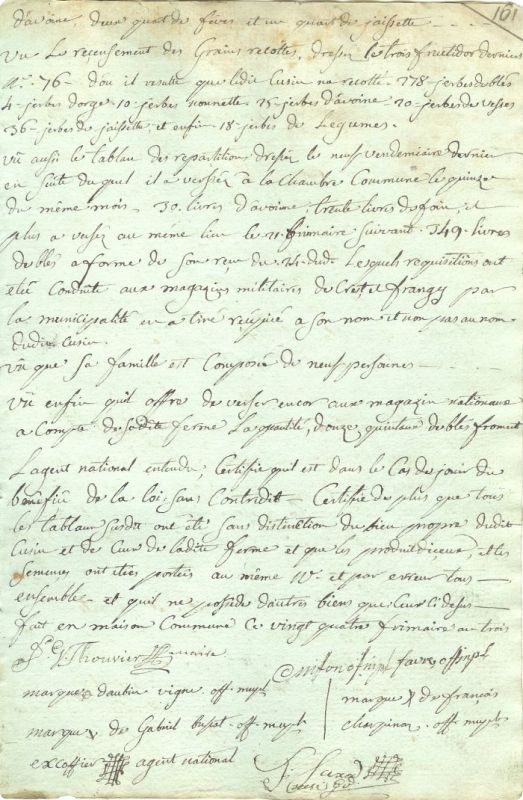 161
d'avoine deux quart de feves et un quart de jaissette
Vu Le recensement des Grains recoltés, dressé le trois fructidor dernier
N.° 76 – dou il resulte que ledit Cusin na recolté 278 jerbes de blés
4 jerbes dorge 10 jerbes nonnette 25 jerbes d'avoine 20 jerbes de vesses
36 jerbes de jaissette, et enfin 18 jerbes de Legumes.
Vû aussi le tablau des repartitions dressez le neuf vendemiaire dernier
en suite duquel il a versséz à la Chambre Commune le quinze
du même mois – 30 livres d'avoine, trente livres de foin, et
plus a versé au même lieu le 21 frimaire suivant 349 livres
de blés a forme de son reçu du 24 dud. Lesquels requisitions ont
etté Conduite aux magazins militaires de Crêt et frangy par
la municipalité en a tiré recepicé a son nom et non pas au nom
dudit Cusin
Vû que sa famille est Composée de neuf persones
Vû enfin quil offre de verser encor aux magazin nationaux
a Compte de sadite ferme La quantité douze quintaux de blés froment
Lagent national entendu, Certifie quil est dans le Cas de jouir du
benefice de la loi sans Contredit – Certifie de plus que tous
les tablaux susdit ont été sans distinction du bien propre dudit
Cusin et de Ceux de ladite ferme et que les produit diceux, et les
semences ont etées portées au même N.° et par erreur tous
ensemble – et quil ne possede dautres biens que Ceux Ci desus
fait en maison Commune Ce vingt quatre frimaire an trois
Thouvier maire
favre off mpl
marque de aubin vigne off. mupl
marque de françois
marque de Gabriel off. mupl
cherpinaz off. mupl
excoffier agent national